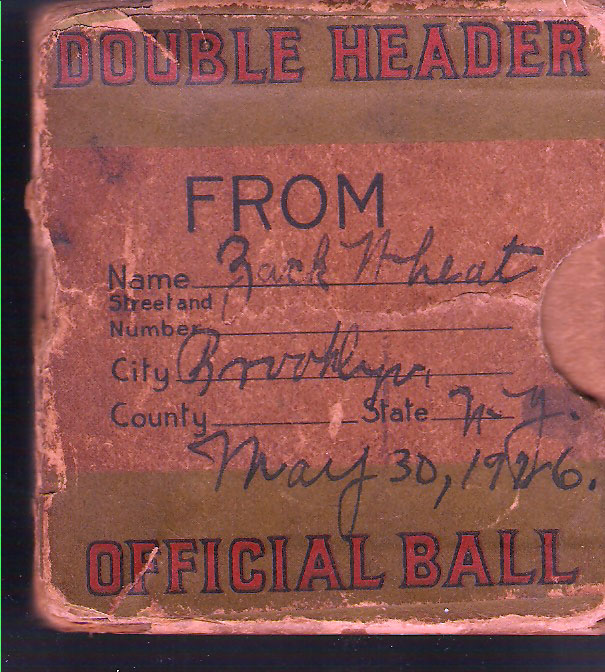 DOUBLE HEADER
FROM
Name Zack Wheat
Street and
Number
City Brooklyn,
County State N.Y.
May 30, 1926.
OFFICIAL BALL